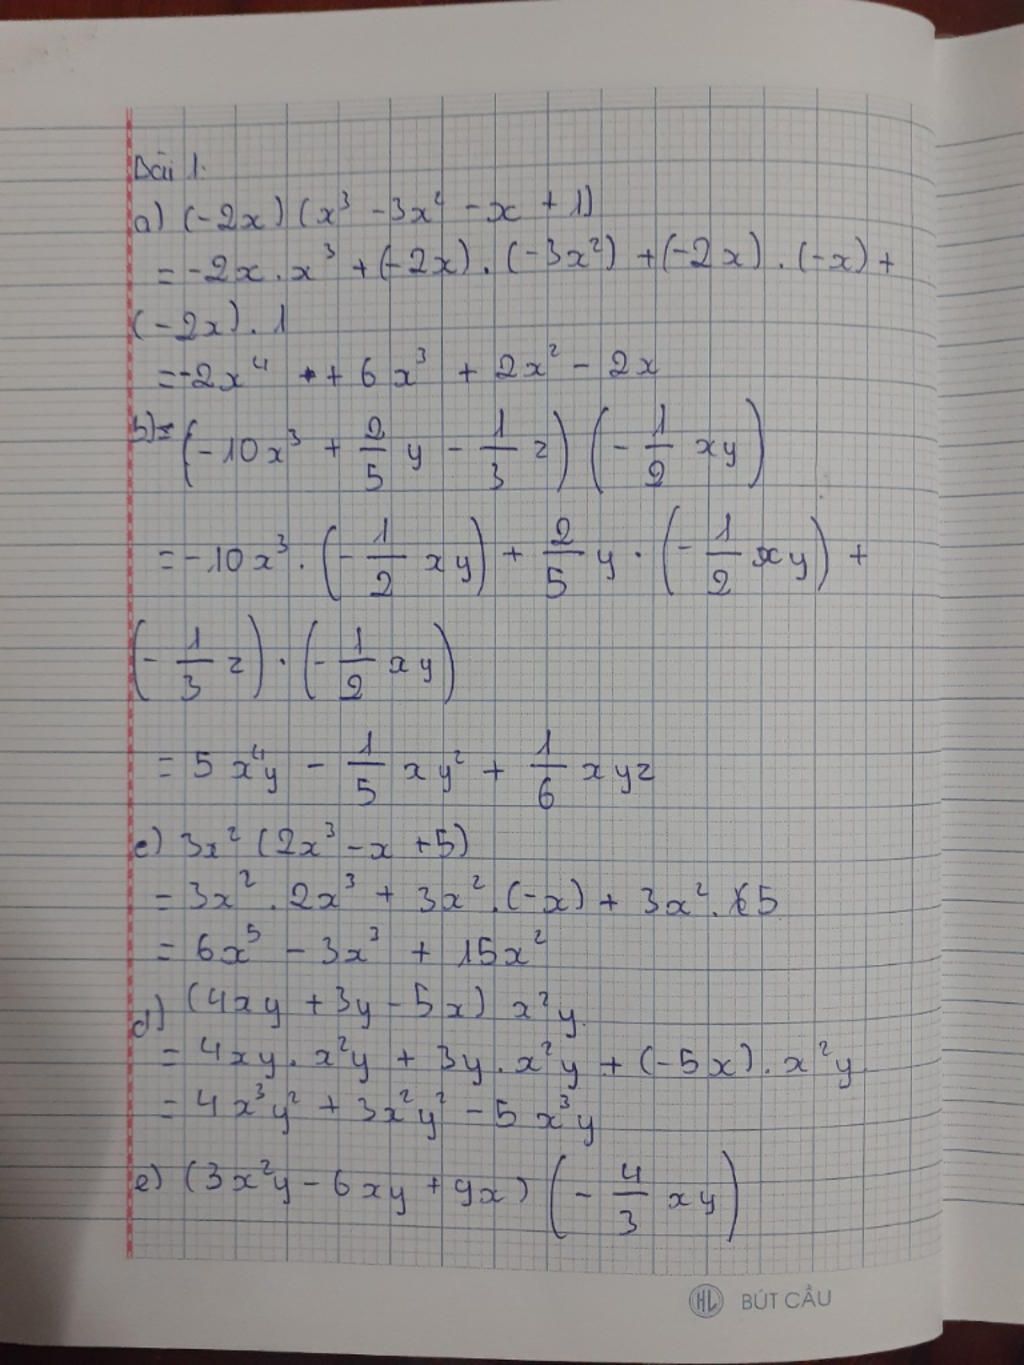 Bài 1.
a) (-2x) (x³ - 3x² - x + 1)
= -2x . x³ + (-2x) . (-3x²) + (-2x) . (-x) +
(-2x) . 1
= -2x⁴ + 6x³ + 2x² - 2x
b) = (-10x³ + 2/5 y - 1/3 z) (-1/2 xy)
= -10x³ . (-1/2 xy) + 2/5 y . (-1/2 xy) +
(-1/3 z) . (-1/2 xy)
= 5x⁴y - 1/5 xy² + 1/6 xyz
c) 3x² (2x³ - x + 5)
= 3x² . 2x³ + 3x² . (-x) + 3x² . 5
= 6x⁵ - 3x³ + 15x²
d) (4xy + 3y - 5x) x²y
= 4xy . x²y + 3y . x²y + (-5x) . x²y
= 4x³y² + 3x²y² - 5x³y
e) (3x²y - 6xy + 9x) (-4/3 xy)
HL BÚT CẦU